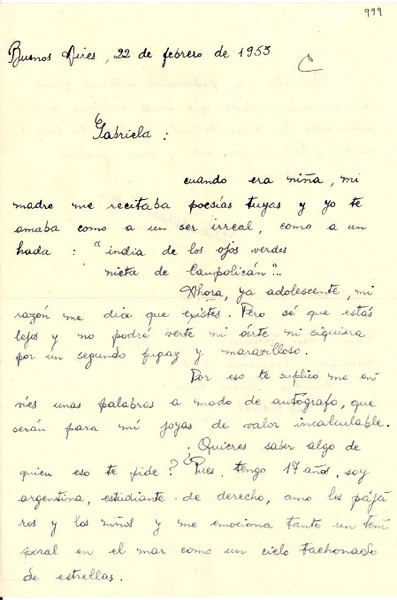 999
Buenos Aires, 22 de febrero de 1953
Gabriela :
cuando era niña, mi
madre me recitaba poesías tuyas y yo te
amaba como a un ser irreal, como a un
hada : "india de los ojos verdes
nieta de Caupolicán"..
Ahora, ya adolescente, mi
razón me dice que existes. Pero sé que estás
lejos y no podré verte ni oírte ni siquiera
por un segundo fugaz y maravilloso.
Por eso te suplico me en
víes unas palabras a modo de autógrafo, que
serán para mí joyas de valor incalculable.
¿Quieres saber algo de
quien eso te pide? Pues, tengo 17 años, soy
argentina, estudiante de derecho, amo los pája
ros y los niños y me emociona tanto un tem
poral en el mar como un cielo tachonado
de estrellas.